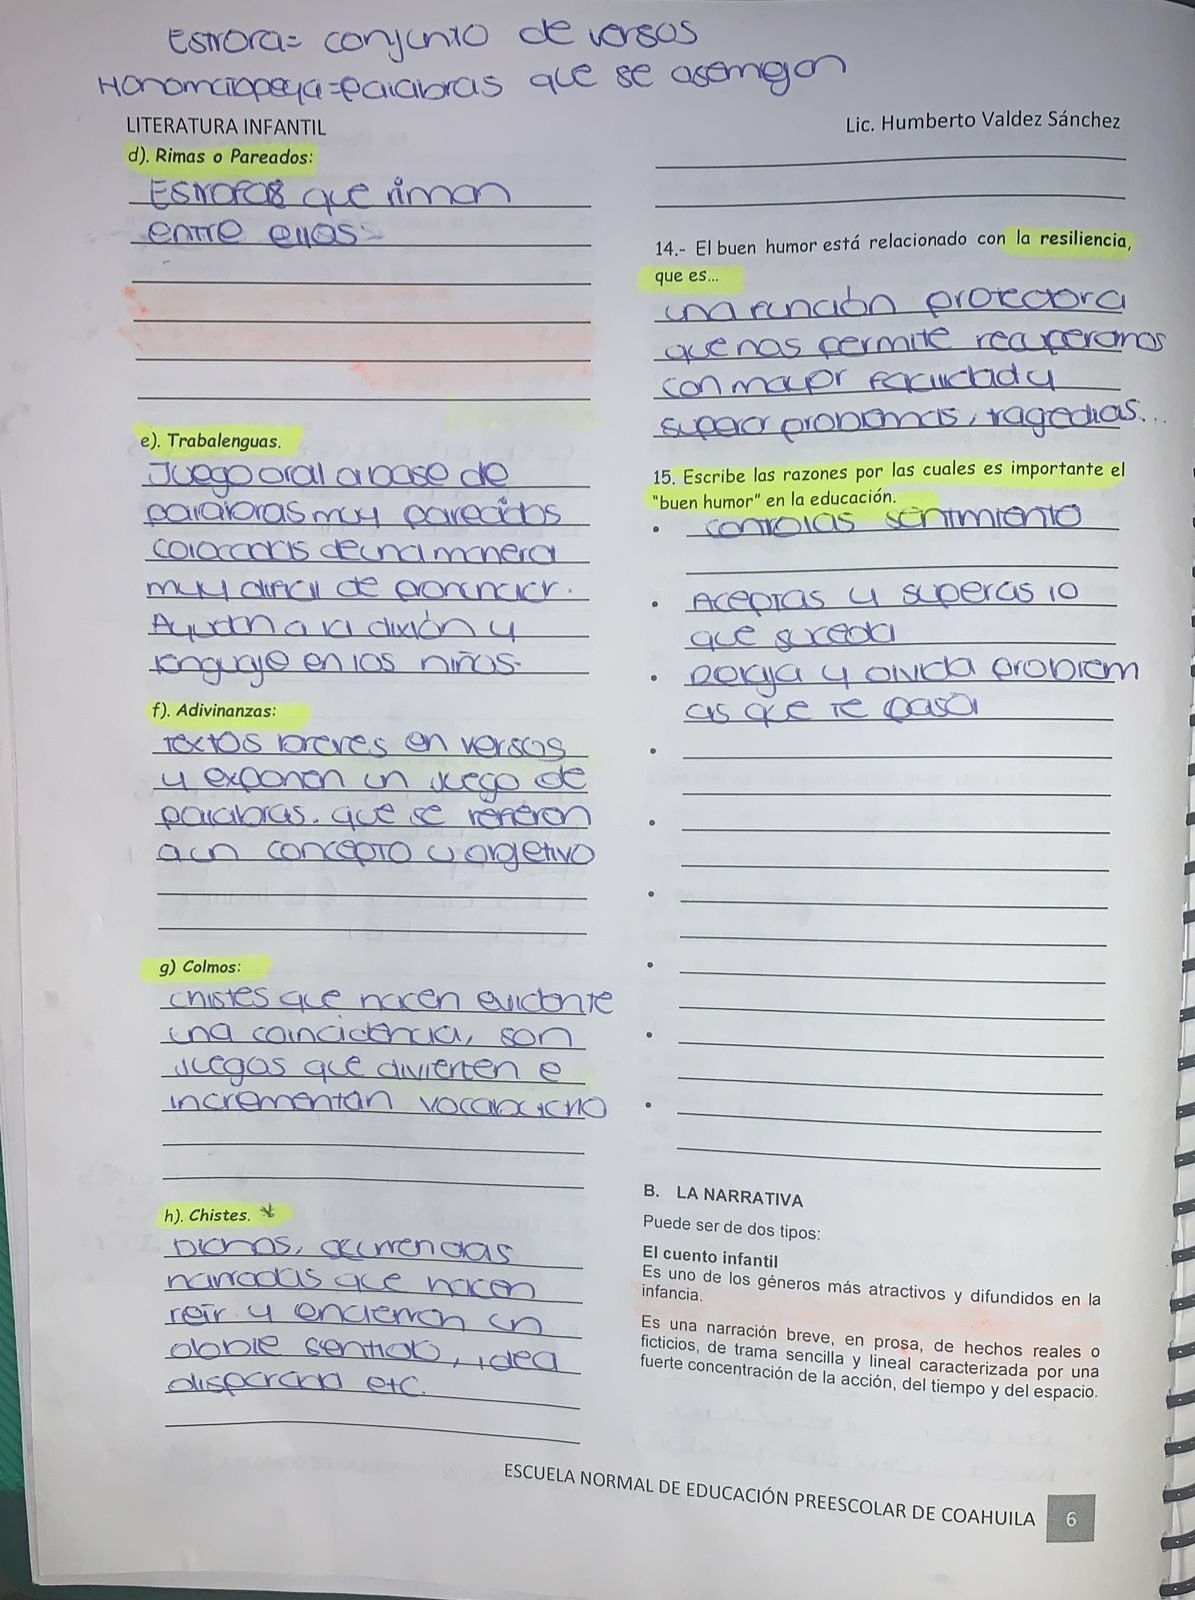 Estrofa= conjunto de versos
Honomatopeya=palabras que se asemejan
LITERATURA INFANTIL
Lic. Humberto Valdez Sánchez
d). Rimas o Pareados:
Estrofas que riman
entre ellas
e). Trabalenguas.
Juego oral a base de
palabras muy parecidas
colocadas de una manera
muy dificil de pronunciar.
Ayudan a la dixión y
lenguaje en los niños.
f). Adivinanzas:
Textos breves en versos
y exponen un juego de
palabras. que se refieren
a un concepto u
g) Colmos:
chistes que hacen evidente
una coincidencia, son
juegos que divierten e
incrementan
h). Chistes. *
Dichos, ocurrencias
narradas que hacen
reír y encierran un
doble sentido, idea
disparada etc.
14.- El buen humor está relacionado con la resiliencia,
que es...
una función protectora
que nos permite recuperarnos
con mayor facilidad y
superar problemas, tragedias...
15. Escribe las razones por las cuales es importante el
"buen humor" en la educación.
• controlas sentimiento
• Aceptas y superas lo
que suceda
• y olvida problem
as que te pasa
B. LA NARRATIVA
Puede ser de dos tipos:
El cuento infantil
Es uno de los géneros más atractivos y difundidos en la
infancia.
Es una narración breve, en prosa, de hechos reales o
ficticios, de trama sencilla y lineal caracterizada por una
fuerte concentración de la acción, del tiempo y del espacio.
ESCUELA NORMAL DE EDUCACIÓN PREESCOLAR DE COAHUILA 6